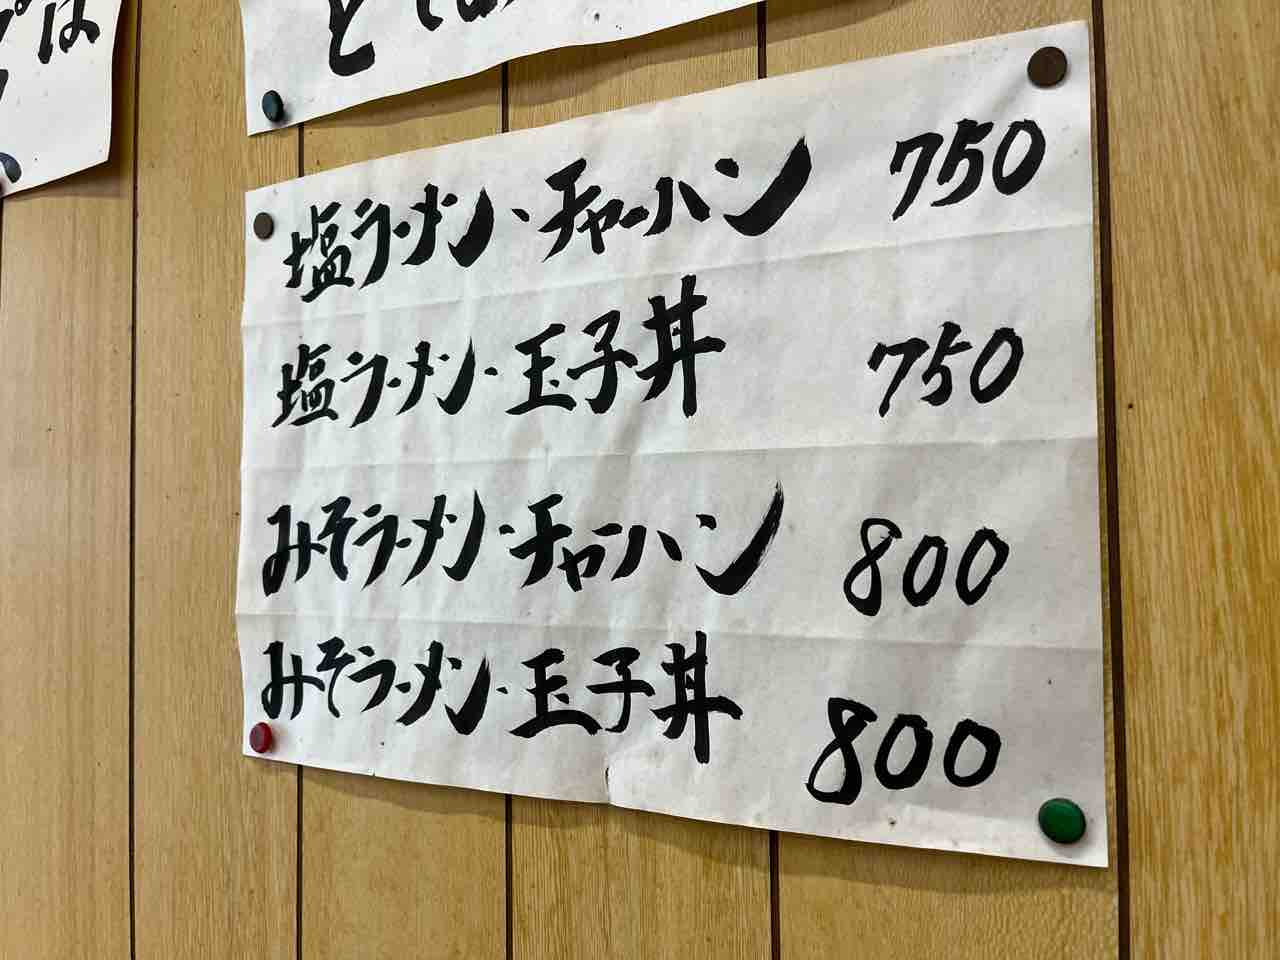 塩ラーメン・チャーハン 750
塩ラーメン・玉子丼 750
みそラーメン・チャーハン 800
みそラーメン・玉子丼 800